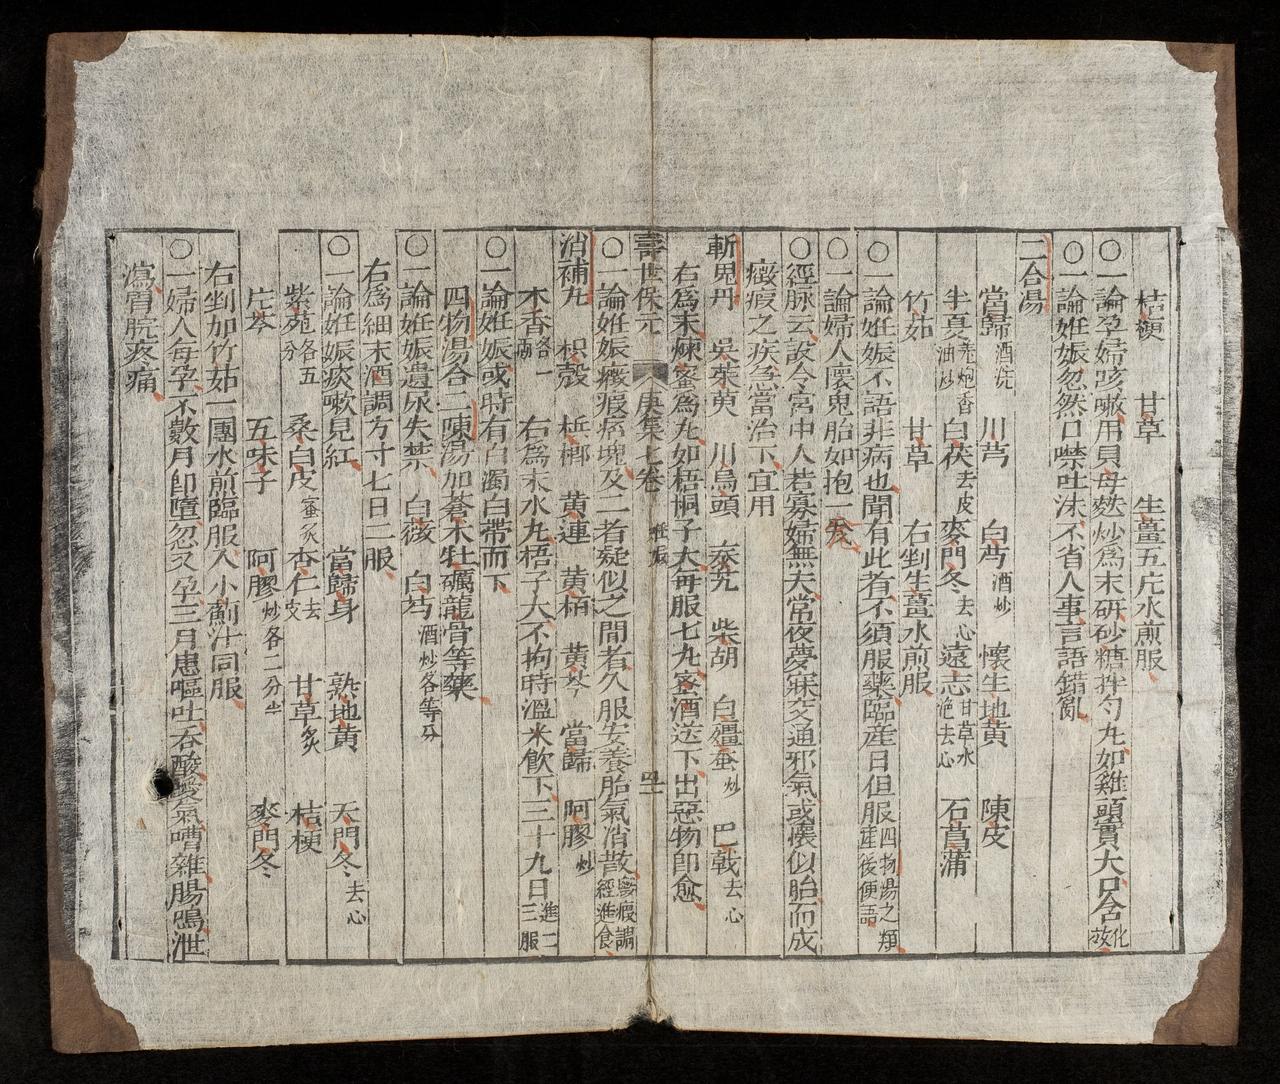 桔梗 甘草 生薑五片水煎服
〇一論孕婦咳嗽用貝母麩炒為末研砂糖拌勻丸如雞頭實大只含化效
〇一論妊娠忽然口噤吐沫不省人事言語錯亂
二合湯
當歸酒洗 川芎 白芍酒炒 懷生地黄 陳皮
半夏薑炮香油炒 白茯去皮 麥門冬去心 遠志甘草水泡去心 石菖蒲
竹茹 甘草 右剉生薑水煎服
〇一論妊娠不語非病也聞有此者不須服藥臨産日但服四物湯之類産後便語
〇一論婦人懷鬼胎如抱一瓮
〇經脉云設令宮中人若寡婦無夫常夜夢寐交通邪氣或懷似胎而成
癥瘕之疾急當治下宜用
斬鬼丹 吳茱萸 川烏頭 秦艽 柴胡 白殭蚕炒 巴戟去心
右為末煉蜜為丸如梧桐子大每服七丸蜜酒送下出惡物即愈
壽世保元 庚集七卷 妊娠 四十
〇一論妊娠癥瘕痞塊及二者疑似之間者久服安養胎氣消散癥瘕調經進食
消補丸
木香各一兩 枳殼 梹榔 黄連 黄栢 黄芩 當歸 阿膠炒
右為末水丸梧子大不拘時溫米飲下三十丸日進二三服
〇一論妊娠或時有白濁白帶而下
四物湯合二陳湯加蒼朮牡礪龍骨等藥
〇一論妊娠遺尿失禁 白薇 白芍酒炒各等分
右為細末酒調方寸七日二服
〇一論妊娠痰嗽見紅 當歸身 熟地黄 天門冬去心
紫苑各五分 桑白皮蜜炙 杏仁去皮 甘草炙 桔梗
片芩 五味子 阿膠炒各二分半 麥門冬
右剉加竹茹一團水煎臨服入小薊汁同服
〇一婦人每孕不數月即墮忽又孕三月患嘔吐吞酸噯氣嘈雜腸鳴泄
瀉胃脘疼痛